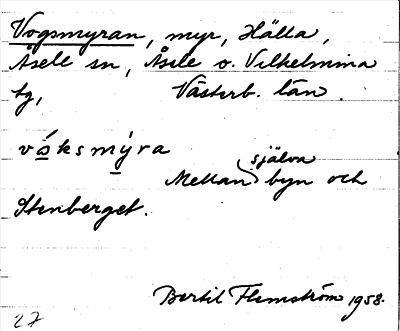 Vogsmyran, myr, Hälla,
Åsele sn, Åsele o. Vilhelmina
tg, Västerb. län.
vóksmýra
själva
Mellan byn och
Stenberget.
Bertil Flemström 1958.
27